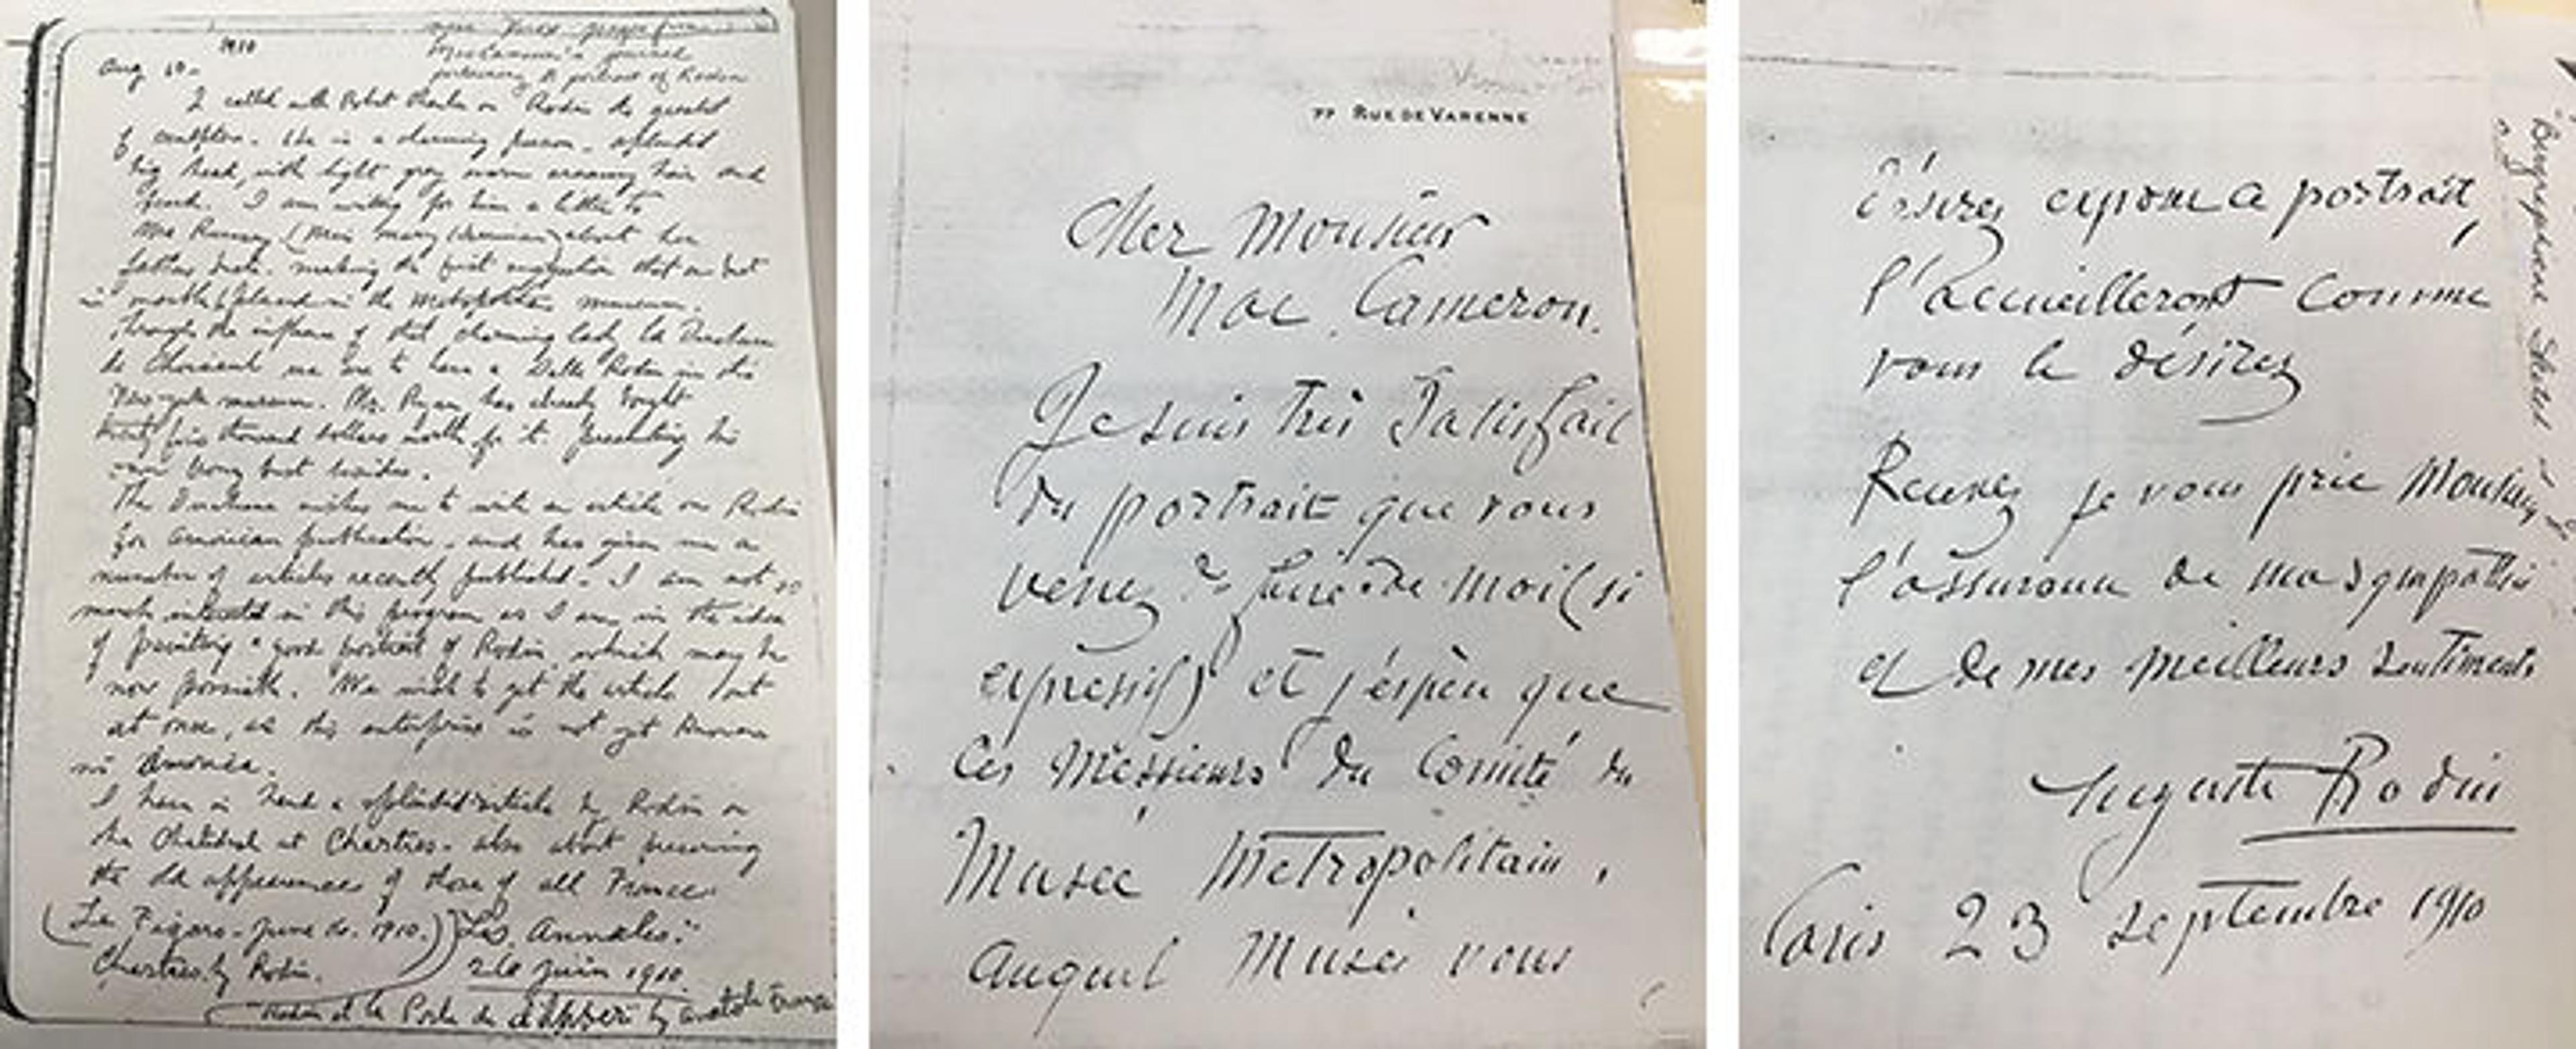 1910
MacCameron's journal
pertaining to portrait of Rodin
Aug 10 -
I called with Robert on Rodin the greatest
of sculptors. He is a charming person - splendid
big head, with light gray warm creamy hair and
beard. I am writing for him a letter to
Mrs Rumsey (Miss Mary Harriman) about her
father's bust. making the first suggestion that our bust
in marble placed in the Metropolitan museum.
Through the influence of that charming lady La Duchesse
de Choiseul we are to have a Salle Rodin in the
New York museum. Mr. Ryan has already bought
twenty five thousand dollars worth for it. presenting his
own bust besides.
The Duchesse wishes me to write an article on Rodin
for American publication, and has given me a
number of articles recently published. I am not so
much interested in this program as I am in the idea
of painting a good portrait of Rodin, which may be
now possible. We wish to get the article out
at once, as this enterprise is not yet known
in America.
I have in hand a splendid article by Rodin on
the Cathedral at Chartres - also about preserving
the old appearances of those of all France.
(Le Figaro - June 1910.) Les Annales.
Chartres by Rodin. juin 1910.
Rodin et la Porte de by Anatole France
77 RUE DE VARENNE
Cher Monsieur
Mac Cameron.
Je suis très satisfait
du portrait que vous
venez de faire de moi (si
expressif) et j'espère que
les Messieurs du Comité du
Musée Métropolitain,
auquel Musée vous
désirez ce portrait,
l'accueilleront comme
vous le désirez
Recevez je vous prie Monsieur
l'assurance de ma sympathie
et de mes meilleurs sentiments
Auguste Rodin
Paris 23 septembre 1910
Sketch